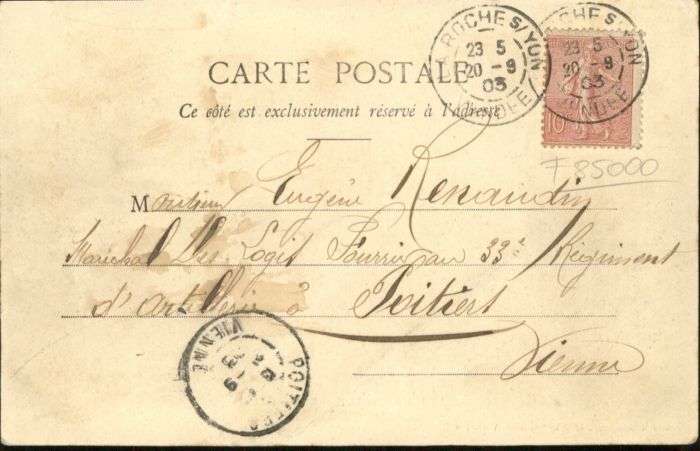 LA ROCHE S/YON
23 5
20 -9
03
VENDÉE
LA ROCHE S/YON
23 5
20 -9
03
VENDÉE
10
CARTE POSTALE
Ce côté est exclusivement réservé à l'adresse
F 85000
Monsieur Eugène Renaudin
Maréchal Des Logis Fourrier au 33e Régiment
d'Artillerie à Poitiers
Vienne
POITIERS
VIENNE